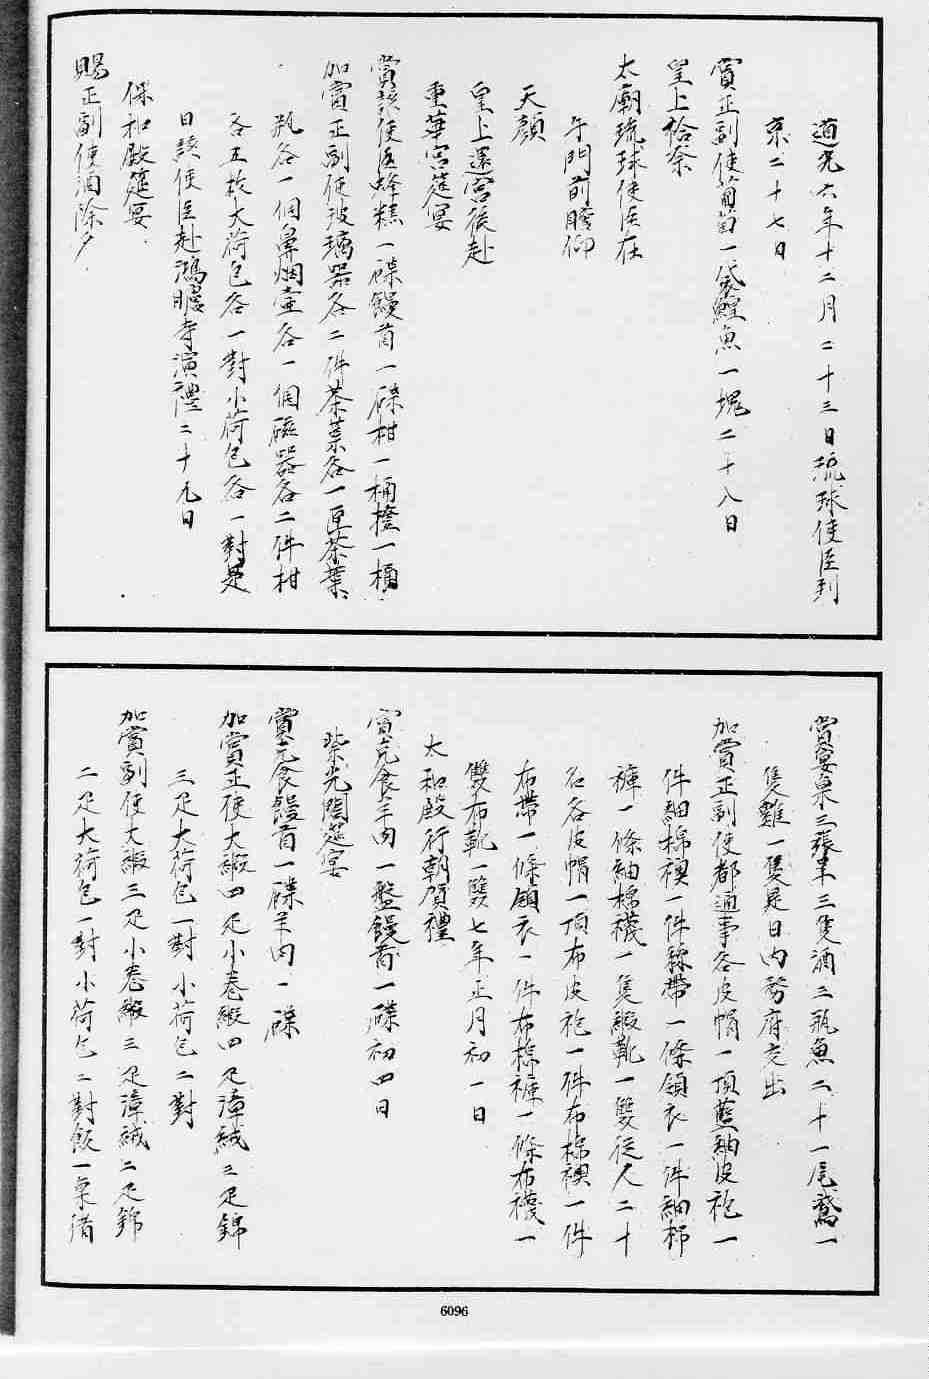 道光六年十二月二十三日琉球使臣到
京二十七日
賞正副使葡萄一袋鰉魚一塊二十八日
皇上祫祭
太廟琉球使臣在
午門前瞻仰
天顏
皇上還宮後赴
重華宮筵宴
賞該使臣蜂糕一碟饅首一碟柑一桶橙一桶
加賞正副使玻璃器各二件茶葉各一匣茶葉
瓶各一個鼻烟壷各一個磁器各二件柑
各五枚大荷包各一對小荷包各一對是
日該使臣赴鴻臚寺演禮二十九日
保和殿筵宴
賜正副使酒除夕
賞宴桌三張羊三隻酒三瓶魚二十一尾鵞一
隻雞一隻是日內務府交出
加賞正副使都通事各皮帽一頂藍紬皮袍一
件紬棉襖一件絲帶一條領衣一件紬棉
褲一條紬棉襪一隻緞靴一雙從人二十
名各皮帽一頂布皮袍一件布棉襖一件
布帶一條領衣一件布棉褲一條布襪一
雙布靴一雙七年正月初一日
太和殿行朝賀禮
賞克食羊肉一盤饅首一碟初四日
紫光閣筵宴
賞克食饅首一碟羊肉一碟
加賞正使大緞四疋小卷緞四疋漳絨三疋錦
三疋大荷包一對小荷包二對
加賞副使大緞三疋小卷緞三疋漳絨二疋錦
二疋大荷包一對小荷包二對飯一桌清
6096